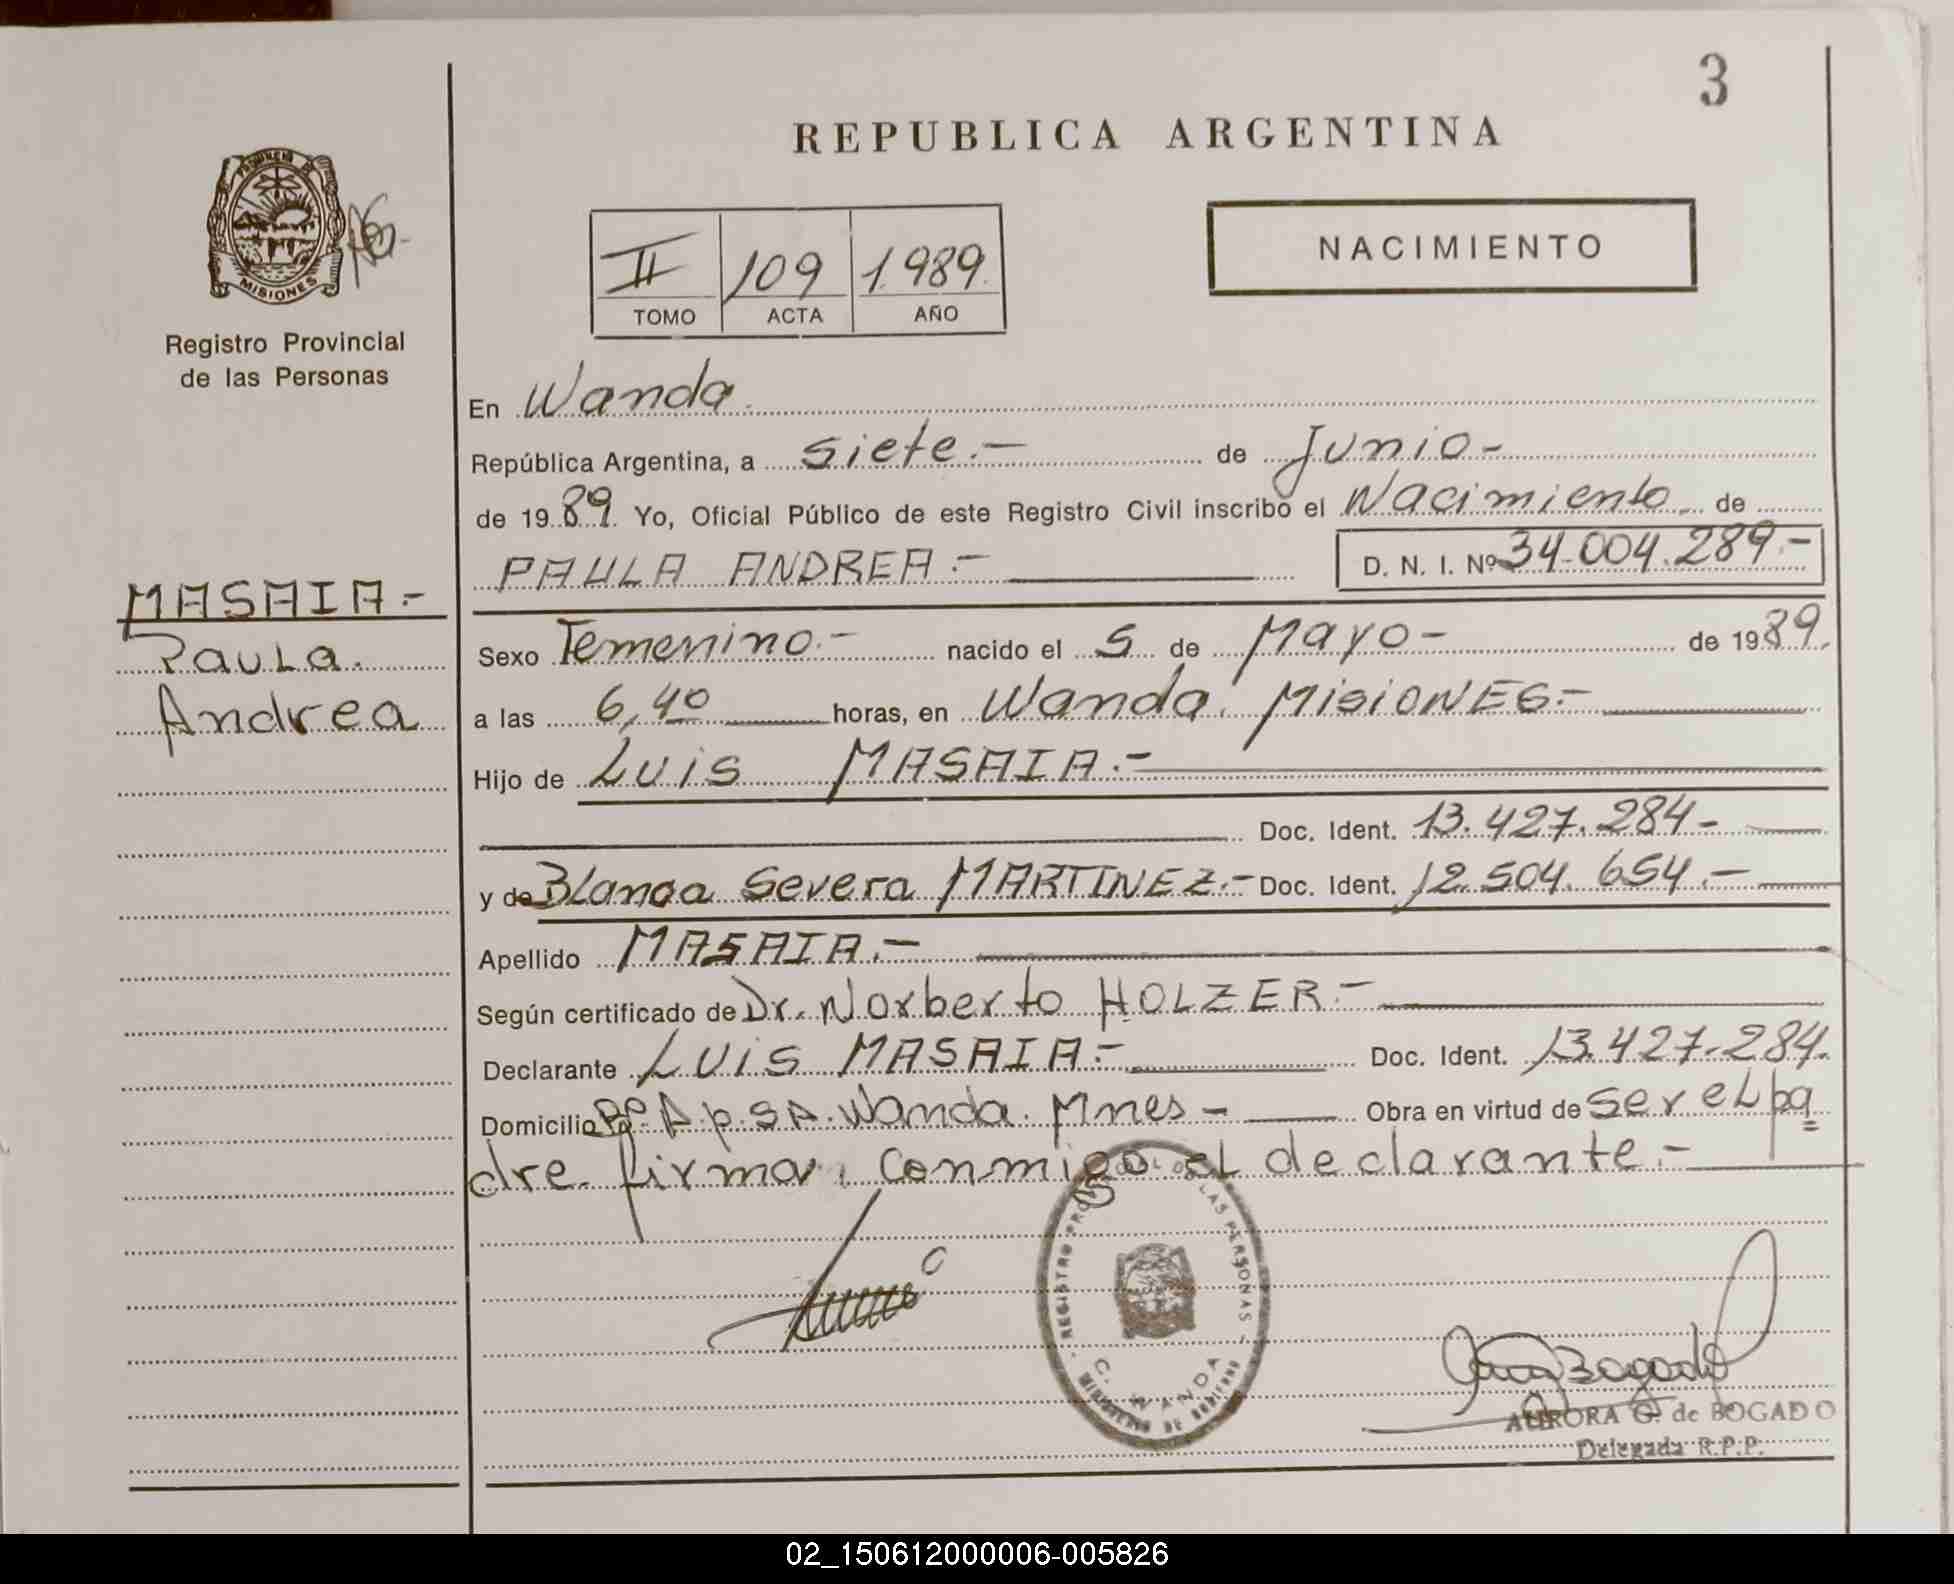 3
REPUBLICA ARGENTINA
PROVINCIA DE
MISIONES
Registro Provincial
de las Personas
II 109 1.989.
TOMO ACTA AÑO
NACIMIENTO
En Wanda.
República Argentina, a siete.- de Junio-
de 1989. Yo, Oficial Público de este Registro Civil inscribo el Nacimiento de
PAULA ANDREA.- D. N. I. Nº 34.004.289.-
MASAIA.-
Paula.
Andrea
Sexo Femenino.- nacido el 5 de Mayo- de 1989.
a las 6,40 horas, en Wanda. MISIONES.-
Hijo de Luis MASAIA.-
Doc. Ident. 13.427.284-
y de Blanca Severa MARTINEZ.- Doc. Ident. 12.504.654.-
Apellido MASAIA.-
Según certificado de Dr. Norberto HOLZER.-
Declarante LUIS MASAIA.- Doc. Ident. 13.427.284.
Domicilio Bº A.p.SA. Wanda. Mnes- Obra en virtud de ser el pa
dre. firma, conmigo el declarante.-
REGISTRO PROVINCIAL DE LAS PERSONAS
C. WANDA
MINISTERIO DE GOBIERNO
AURORA G. de BOGADO
Delegada R.P.P.
02_150612000006-005826